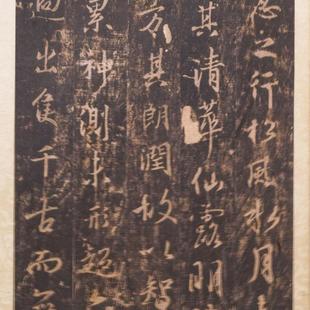 忍之行松風水月未
其清華仙露明珠
方其朗潤故以智
累神測未形超六
迥出隻千古而無